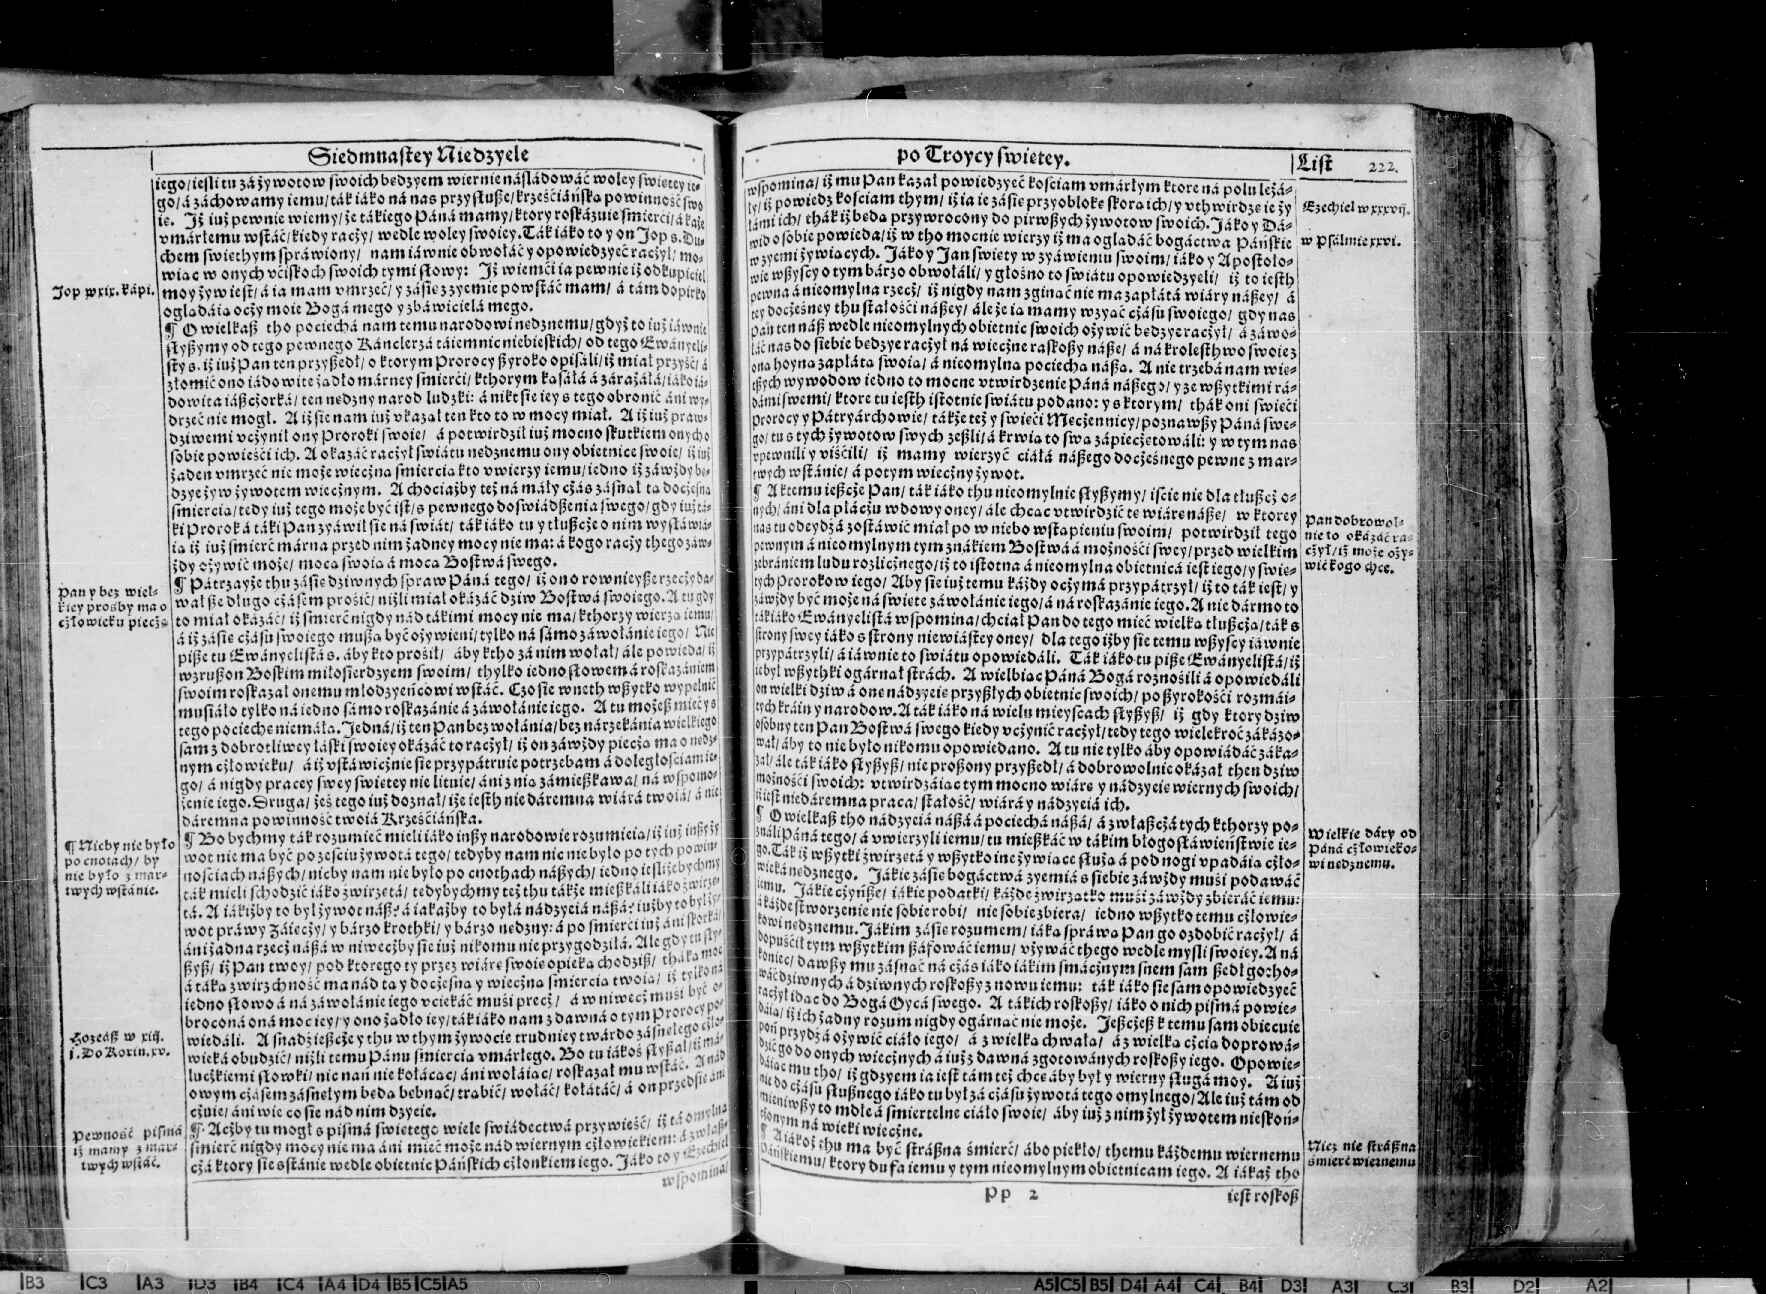 Siedmnastey Niedzyele
iego/ iesli tu zá żywotow swoich bedzyem wiernie násládowáć woley swietey ie-
go/ á záchowamy iemu/ ták iáko ná nas przyslusze/ krześćiáńska powinność swo
ie. Iż iuż pewnie wiemy/ że tákiego Páná mamy/ ktory roskázuie śmierći/ á każe
vmárłemu wstáć/ kiedy racży/ wedle woley swoiey. Ták iáko to y on Jop s. Du-
chem swiethym spráwiony/ nam iáwnie obwołáć y opowiedzyeć racżył/ mo-
wiac w onych vćiskoch swoich tymi słowy: Iż wiemći ia pewnie iż odkupićiel
moy żyw iest/ á ia mam vmrzeć/ y zásie z zyemie powstáć mam/ á tám dopirko
ogládáia ocży moie Bogá mego y zbáwićielá mego.
Jop w xix. kápi.
¶ O wielkasz tho poćiechá nam temu narodowi nedznemu/ gdyż to iuż iáwnie
słyszymy od tego pewnego Kánclerzá táiemnic niebieskich/ od tego Ewányeli-
sty s. iż iuż Pan ten przyszedł/ o ktorym Prorocy szyroko opisáli/ iż miał przyść/ á
złomić ono iádowite żądło márney śmierći/ kthorym kąsáłá á zárażáłá/ iáko iá-
dowita iászcżorká/ ten nedzny narod ludzki: á nikt sie iey s tego obronić áni wy-
drzeć nie mogł. A iż sie nam iuż vkazał ten kto to w mocy miał. A iż iuż praw-
dziwemi vcżynił ony Proroki swoie/ á potwirdził iuż mocno skutkiem onych o
sobie powieśći ich. A okázáć racżył swiátu nedznemu ony obietnice swoie/ iż iuż
żaden vmrzeć nie może wiecżną śmierćią kto vwierzy iemu/ iedno iż záwżdy be-
dzye żyw żywotem wiecżnym. A choćiażby też ná máły cżás zásnął tą docżesną
śmierćią/ tedy iuż tego może być ist/ s pewnego doświádszenia swego/ gdy iuż tá-
ki Prorok á táki Pan zyáwił sie ná swiát/ ták iáko tu y tłuszcże o nim wystáwiá-
ia iż iuż śmierć márna przed nim żadney mocy nie ma: á kogo racży thego záw-
żdy ożywić może/ mocą swoią á mocą Bostwá swego.
¶ Pátrzayże thu zásie dziwnych spraw Páná tego/ iż ono rownieysze rzecży da-
wał sie długo cżásem prośić/ niżli miał okázáć dziw Bostwá swoiego. A tu gdy
to miał okázáć/ iż śmierć nigdy nád tákimi mocy nie ma/ kthorzy wierzą iemu/
á iż zásie cżásu swoiego muszą być ożywieni/ tylko ná sámo záwołánie iego/ Nie
pisze tu Ewányelistá s. áby kto prośił/ áby ktho zá nim wołał/ ále powieda/ iż
wzruszon Boskim miłosierdzyem swoim/ thylko iedno słowem á roskazániem
swoim roskazał onemu młodzyeńcowi wstáć. Czo sie wneth wszytko wypełnić
musiáło tylko ná iedno sámo roskazánie á záwołánie iego. A tu możesz mieć y s
tego poćieche niemáłą. Jedná/ iż ten Pan bez wołánia/ bez nárzekánia wielkiego
sam z dobrotliwey łáski swoiey okázáć to racżył/ iż on záwżdy piecżą ma o nedz-
nym cżłowieku/ á iż vstáwicżnie sie przypátruie potrzebam á doległośćiam ie-
go/ á nigdy pracey swey swietey nie lituie/ áni z nią zámieszkawa/ ná wspomo-
żenie iego. Druga/ żeś tego iuż doznał/ iże iesth niedáremna wiárá twoiá/ á nie
dáremna powinność twoiá Krześćiáńska.
Pan y bez wiel-
kiey prośby ma o
cżłowieku piecżą
¶ Bo bychmy ták rozumieć mieli iáko inszy narodowie rozumieią/ iż iuż inszy ży
wot nie ma być po ześćiu żywotá tego/ tedyby nam nic nie było po tych powin-
nośćiach nászych/ nieby nam nie było po cnothach nászych/ iedno iesliżebychmy
ták mieli schodzić iáko zwirzętá/ tedybychmy też thu tákże mieszkáli iáko zwirzę-
tá. A iákiżby to był żywot nász? á iákażby to byłá nádzyeiá nászá? iużby to był ży-
wot práwy Záięcży/ y bárzo krothki/ y bárzo nedzny: á po śmierći iuż áni skorká/
áni żadna rzecż nászá w niwecżby sie iuż nikomu nie przygodziłá. Ale gdy tu sły-
szysz/ iż Pan twoy/ pod ktorego ty przez wiáre swoie opieką chodzisz/ tháką moc
á táką zwirzchność ma nád tą y docżesną y wiecżną śmierćią twoią/ iż tylko ná
iedno słowo á ná záwołánie iego vćiekáć muśi precż/ á w niwecż muśi być o-
brocona oná moc iey/ y ono żądło iey/ ták iáko nam z dawná o tym Prorocy po-
wiedáli. A snadź ieszcże y thu w thym żywoćie trudniey twárdo zásnełego cżło-
wieká obudzić/ niżli temu Pánu śmierćią vmárłego. Bo tu iákoś słyszał/ iż má-
lucżkiemi słowki/ nic nań nie kołácąc/ áni wołáiąc/ roskazał mu wstáć. A nád
owym cżásem zásnełym bedą bebnáć/ trąbić/ wołáć/ kołátáć/ á on przedsie áni
cżuie/ áni wie co sie nád nim dzyeie.
¶ Nicby nie było
po cnotach/ by
nie było z mar-
twych wstánie.
Hozeasz w xiij.
j. Do Korin. xv.
¶ Acżby tu mogł s pismá swietego wiele swiádectwá przywieść/ iż tá omylna
śmierć nigdy mocy nie ma áni mieć może nád wiernym cżłowiekiem: á zwłasz-
cżá ktory sie sstánie wedle obietnic Páńskich cżłonkiem iego. Jáko to y Ezechiel
Pewność pismá
iż mamy z mar-
twych wstáć.
wspomina/
po Troycy swietey.
List 222.
wspomina/ iż mu Pan kazał powiedzyeć kośćiam vmárłym ktore ná polu leżá-
ły/ iż powiedz kośćiam thym/ iż ia ie zásie przyobloke skorą ich/ y vthwirdze ie ży
łámi ich/ thák iż bedą przywrocony do pirwszych żywotow swoich. Jáko y Dá-
wid o sobie powieda/ iż w tho mocnie wierzy iż ma oglądáć bogáctwá Páńskie
w zyemi żywiących. Jáko y Jan swiety w zyáwieniu swoim/ iáko y Apostoło-
wie wszyscy o tym bárzo obwołáli/ y głośno to swiátu opowiedzyeli/ iż to iesth
pewna á nieomylna rzecż/ iż nigdy nam zginąć nie ma zapłátá wiáry nászey/ á
tey docżesney thu stałośći nászey/ ále że ią mamy wzyąć cżásu swoiego/ gdy nas
Pan ten nász wedle nieomylnych obietnic swoich ożywić bedzye racżył/ á záwo-
łáć nas do siebie bedzye racżył ná wiecżne roskoszy násze/ á ná krolesthwo swoie z
oną hoyną zapłatą swoią/ á nieomylną poćiechą nászą. A nie trzebá nam wie-
tszych wywodow iedno to mocne vtwirdzenie Páná nászego/ y ze wszytkimi rá-
dámi swemi/ ktore tu iesth istotnie swiátu podano: y s ktorym/ thák oni swieći
Prorocy y Pátryárchowie/ tákże też y swieći Mecżennicy/ poznawszy Páná swe-
go/ tu s tych żywotow swych zeszli/ á krwią to swą zápiecżętowáli: y w tym nas
vpewnili y vśćili/ iż mamy wierzyć ciáłá nászego docżesnego pewne z mar-
twych wstánie/ á potym wiecżny żywot.
Ezechiel w xxxvij.
w Psálmie xxvi.
¶ A k temu ieszcże Pan/ ták iáko thu nieomylnie słyszymy/ iśćie nie dla tłuszcż o-
nych/ áni dla płácżu wdowy oney/ ále chcąc vtwirdzić te wiáre násze/ w ktorey
nas tu odeydzą zostáwić miał po w niebo wstąpieniu swoim/ potwirdził tego
pewnym á nieomylnym tym znákiem Bostwá á możnośći swey/ przed wielkim
zebrániem ludu rozlicżnego/ iż to istotna á nieomylna obietnicá iest iego/ y swie-
tych Prorokow iego/ Aby sie iuż temu káżdy ocżymá przypátrzył/ iż to ták iest/ y
záwżdy być może ná swiete záwołánie iego/ á ná roskazánie iego. A nie dármo to
ták iáko Ewányelistá wspomina/ chćiał Pan do tego mieć wielką tłuszcżą/ ták s
strony swey iáko s strony niewiásty oney/ dla tego iżby sie temu wszyscy iáwnie
przypátrzyli/ á iáwnie to swiátu opowiedáli. Ták iáko tu pisze Ewányelistá/ iż
ie był wszythki ogárnął strách. A wielbiąc Páná Bogá roznośili á opowiedáli
on wielki dziw á one nádzyeie przyszłych obietnic swoich/ po szyrokośći rozmái-
tych kráin y narodow. A ták iáko ná wielu mieyscach słyszysz/ iż gdy ktory dziw
osobny ten Pan Bostwá swego kiedy vcżynić racżył/ tedy tego wielekroć zákázo-
wał/ áby to nie było nikomu opowiedano. A tu nie tylko áby opowiádáć záká-
zał/ ále ták iáko słyszysz/ nie proszony przyszedł/ á dobrowolnie okazał then dziw
możnośći swoich: vtwirdzáiąc tym mocno wiáre y nádzyeie wiernych swoich/
iż iest niedáremna praca/ stałość/ wiárá y nádzyeiá ich.
Pan dobrowol-
nie to okázáć ra-
cżył/ iż może oży-
wić kogo chce.
¶ O wielkasz tho nádzyeiá nászá á poćiechá nászá/ á zwłaszcżá tych kthorzy po-
ználi Páná tego/ á vwierzyli iemu/ tu mieszkáć w tákim błogosłáwieństwie ie-
go. Ták iż wszytki zwirzętá y wszytko ine żywiące służą á pod nogi vpadáią cżło-
wieká nedznego. Jákie zásie bogáctwá zyemiá s siebie záwżdy muśi podawáć
iemu. Jákie cżynsze/ iákie podatki/ káżde zwirzątko muśi záwżdy zbieráć iemu:
á káżde stworzenie nie sobie robi/ nie sobie zbiera/ iedno wszytko temu cżłowie-
kowi nedznemu. Jákim zásie rozumem/ iáką spráwą Pan go ozdobić racżył/ á
dopuśćił tym wszytkim száfowáć iemu/ vżywáć thego wedle mysli swoiey. A ná
koniec/ dawszy mu zásnąć ná cżás iáko iákim smácżnym snem sam szedł gotho-
wáć dziwnych á dziwnych roskoszy z nowu iemu: ták iáko sie sam opowiedzyeć
racżył idąc do Bogá Oycá swego. A tákich roskoszy/ iáko o nich pismá powie-
dáią/ iż ich żadny rozum nigdy ogárnąć nie może. Jeszcżesz k temu sam obiecuie
poń przydźą ożywić ciáło iego/ á z wielką chwałą/ á z wielką cżćią doprowá-
dzić go do onych wiecżnych á iuż z dawná zgotowánych roskoszy iego. Opowie-
dáiąc mu tho/ iż gdzyem ia iest tám też chce áby był y wierny sługá moy. A iuż
nie do cżásu słusznego iáko tu był zá cżásu żywotá tego omylnego/ Ale iuż tám od
mieniwszy to mdłe á śmiertelne ciáło swoie/ áby iuż z nim żył żywotem nieskoń-
cżonym ná wieki wiecżne.
Wielkie dáry od
Páná cżłowieko-
wi nedznemu.
¶ A iákoż thu ma być strászna śmierć/ ábo piekło/ themu káżdemu wiernemu
Páńskiemu/ ktory dufa iemu y tym nieomylnym obietnicam iego. A iákaż tho
Nicz nie strászna
śmierć wiernemu
Pp 2
iest roskosz
B3 C3 A3 D3 B4 C4 A4 D4 B5 C5 A5
A5 C5 B5 D4 A4 C4 B4 D3 A3 C3 B3 D2 A2